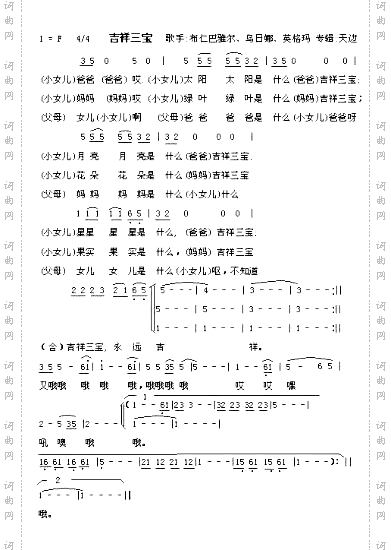 1 = F 4/4 吉祥三宝 歌手:布仁巴雅尔、乌日娜、英格玛 专辑:天边
3 5 0 5 0 | 5 5 5 5 5 3 2 | 3 2 0 0 0 |
(小女儿)爸爸 (爸爸)哎 (小女儿)太 阳 太 阳是 什么(爸爸)吉祥三宝;
(小女儿)妈妈 (妈妈)哎 (小女儿)绿 叶 绿 叶是 什么(妈妈)吉祥三宝;
(父母) 女儿(小女儿)啊 (父母)爸 爸 爸 爸是 什么(小女儿)爸爸呀
5 5 5 5 5 3 2 | 3 2 0 0 0 |
(小女儿)月 亮 月 亮是 什么(爸爸)吉祥三宝.
(小女儿)花 朵 花 朵是 什么(爸爸)吉祥三宝.
(父母) 妈 妈 妈 妈是 什么(小女儿)什么
1 1 1 1 1 6 5 | 3 2 0 0 0 |
(小女儿)星星 星 星是 什么,(爸爸)吉祥三宝
(小女儿)果实 果 实是 什么,(妈妈)吉祥三宝
(父母) 女儿 女 儿是 什么(小女儿)呕,不知道
2 2 2 3 2 1 6 5 | 5 - - - | 4 - - - | 3 - - - | 3 - - - :||
5 - - - | 1 - - - | 1 - - - | 1 - - - :||
1 - - - | 1 - - - | 1 - - - | 1 - - - :||
(合)吉祥三宝, 永 远 吉 祥。
3 5 5 - 6 1 | 1 - - 6 1 | 5 5 3 5 5 - | 1 - - 6 1 | 5 - 6 5 |
又哦哦 哦 哦 哦,哦哦哦 哦 哎 哎 嘿
2 - 5 3 5 | 2 - - -
吼 噢 哦 哦。
1 6 6 1 1 6 6 1 | 5 - - - | 2 1 1 2 1 2 1 2 | 1 - - - | 1 5 6 1 1 6 5 1 | 1 - - - ) : ||
2
1 - - - | 1 - - - ||
哦。
词曲网
词曲网
词曲网
词曲网
词曲网
词曲网
词曲网
词曲网
词曲网
词曲网